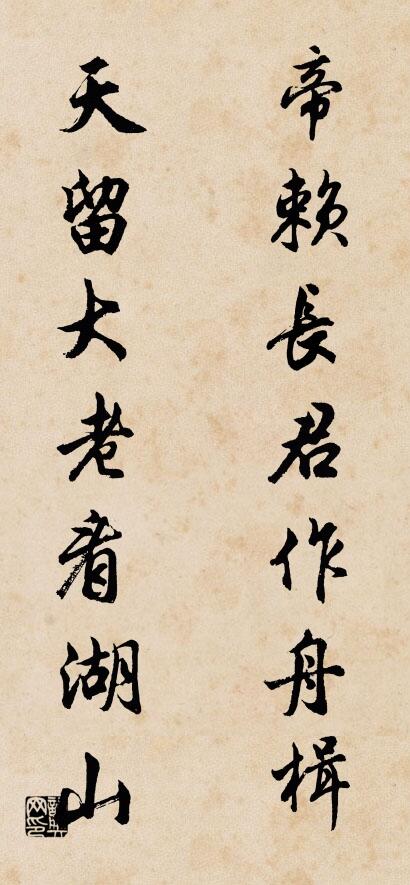 帝赖長君作舟楫
天留大老看湖山